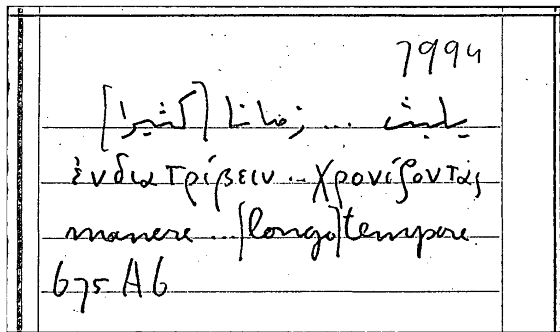 7994
يلبث ... زمانا [كثيرا]
ἐνδιατρίβειν .. χρονίζοντας
manere ... [longo] tempore
675 A6